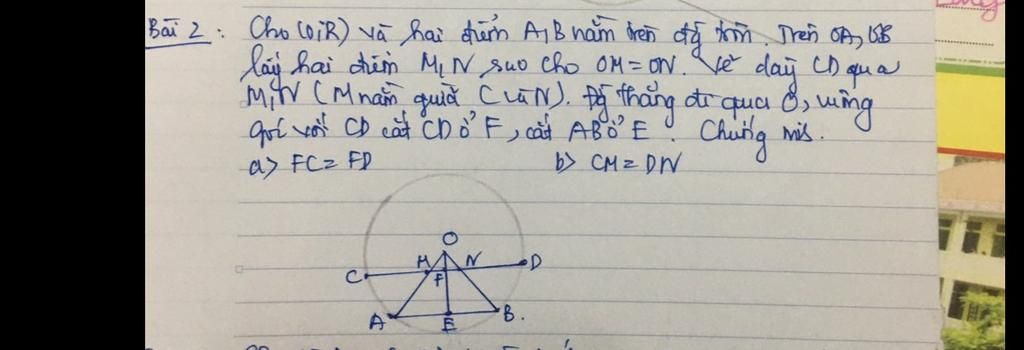 Bài 2: Cho (O;R) và hai điểm A,B nằm trên đg tròn. Trên OA, OB
lấy hai điểm M,N sao cho OM = ON. Vẽ dây CD qua
M,N (M nằm giữa C và N). Đg thẳng đi qua O, vuông
góc với CD cắt CD ở F, cắt AB ở E. Chứng mis.
a> FC = FD b> CM = DN
O
M N D
C F
A E B.